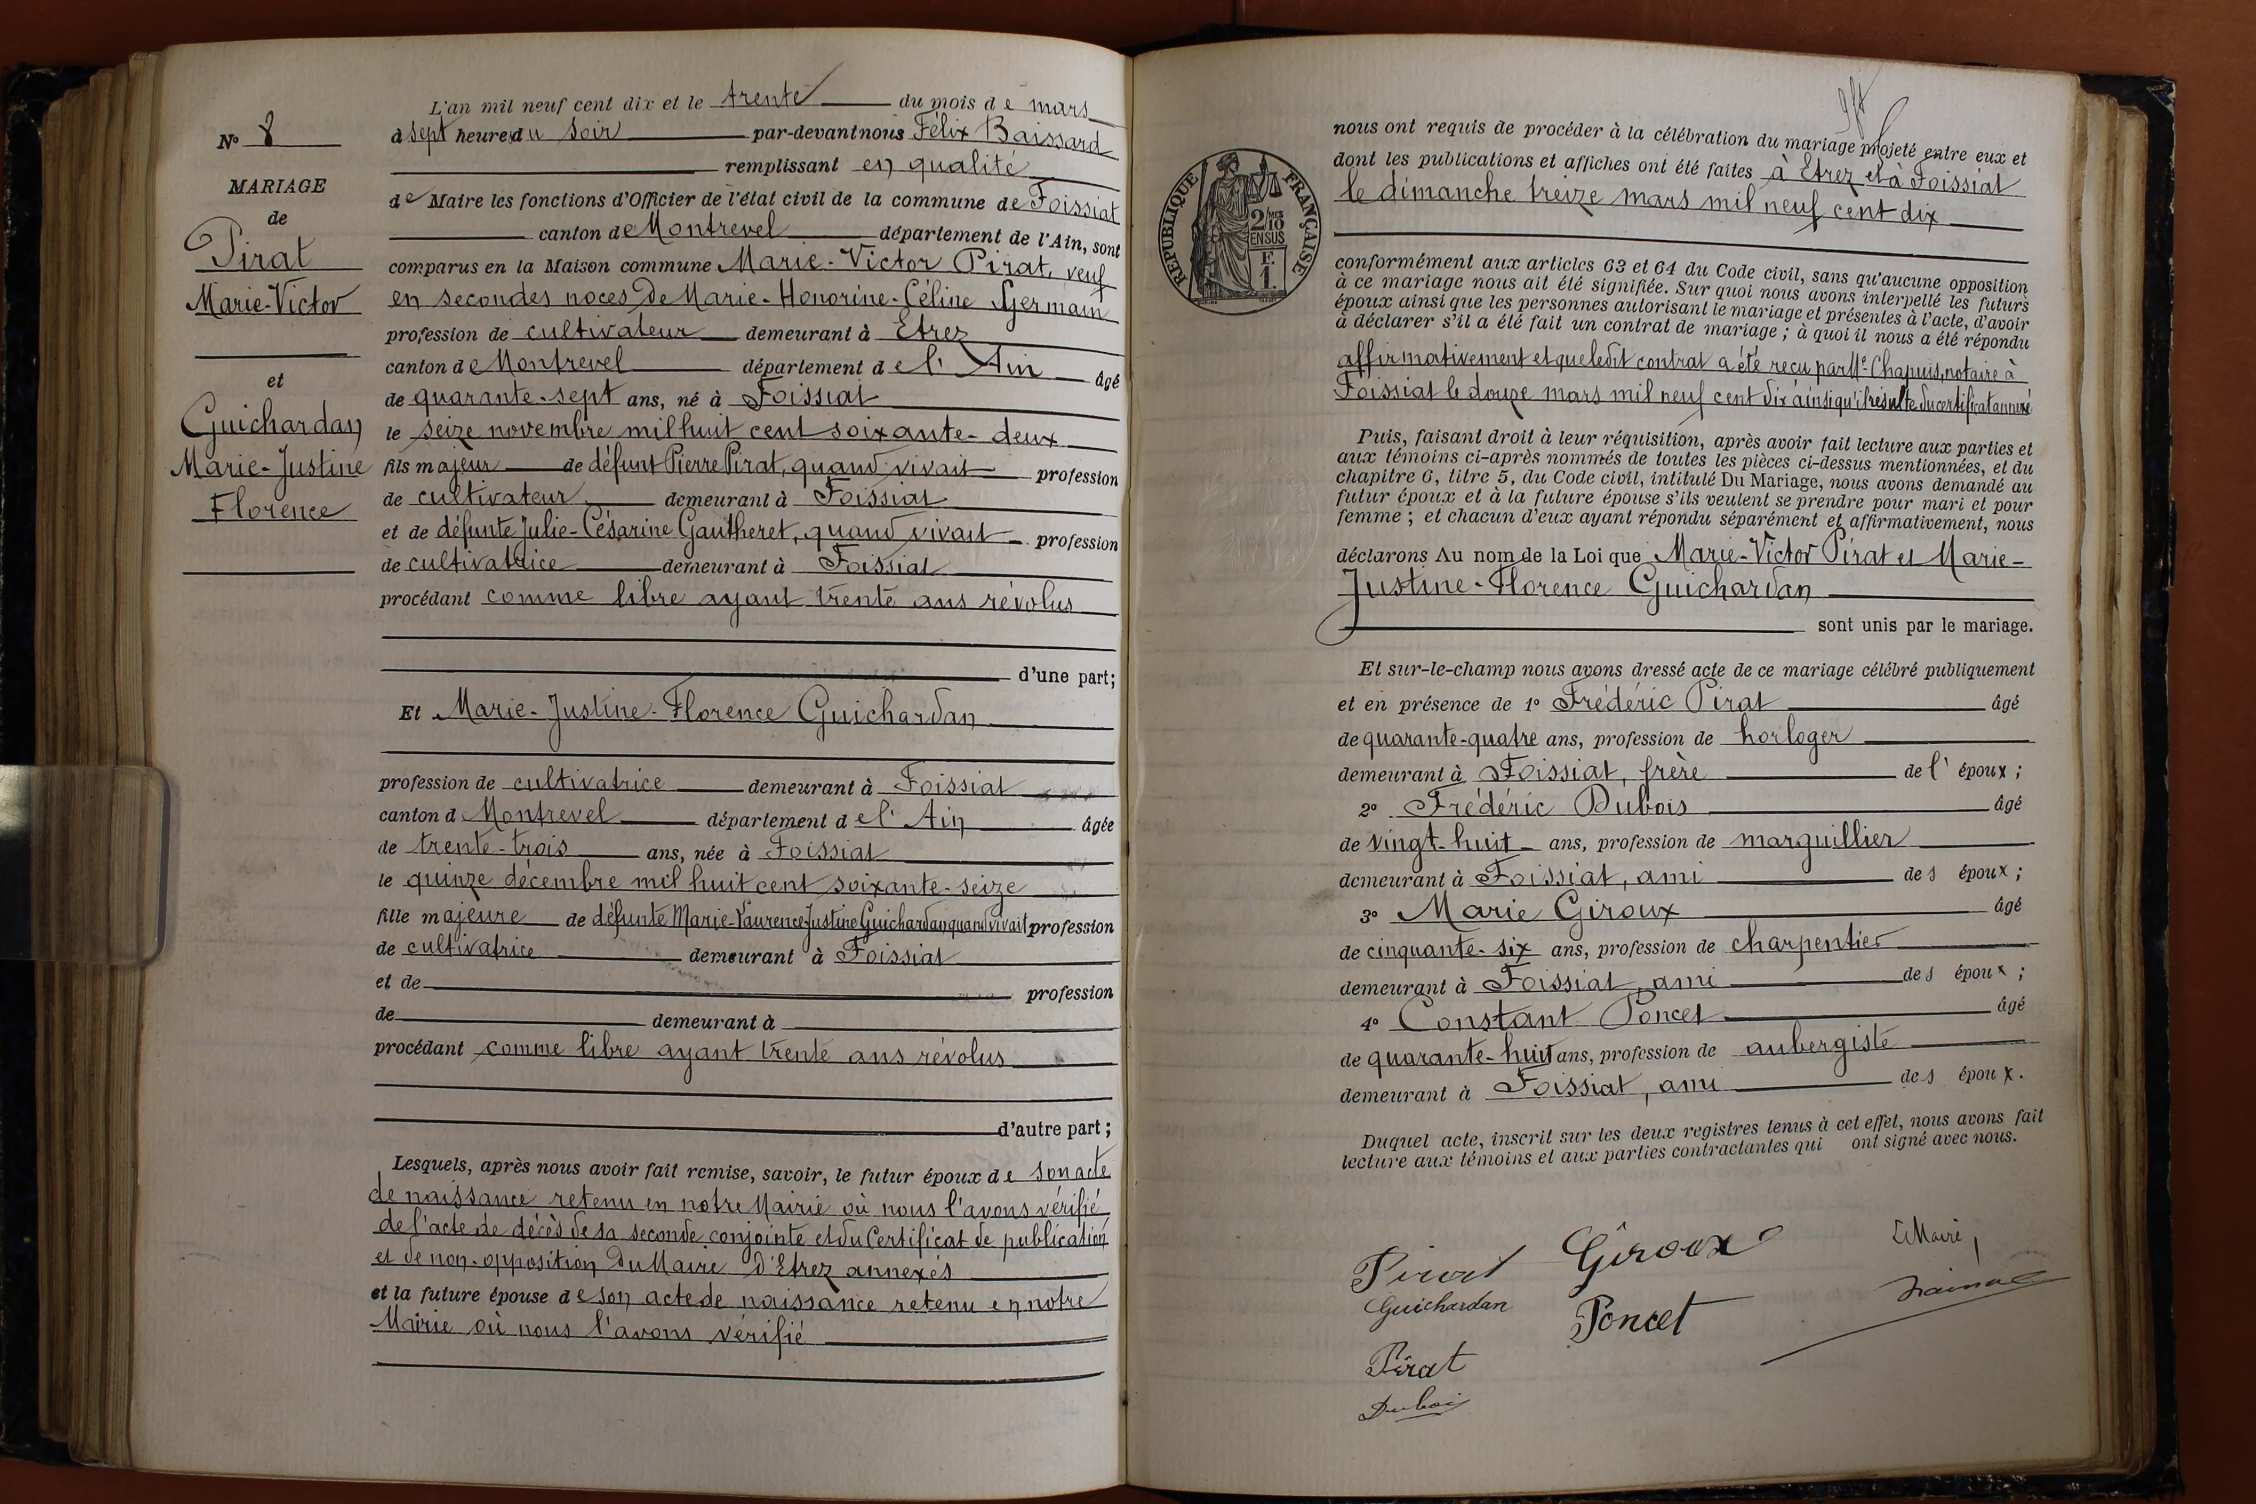 N° 8
MARIAGE
de
Pirat
Marie-Victor
et
Guichardan
Marie-Justine
Florence
L'an mil neuf cent dix et le trente du mois de mars
à sept heures du soir par-devant nous Félix Baissard
remplissant en qualité
de Maire les fonctions d'Officier de l'état civil de la commune de Foissiat
canton de Montrevel département de l'Ain, sont
comparus en la Maison commune Marie-Victor Pirat, veuf
en secondes noces de Marie-Honorine-Céline Germain
profession de cultivateur demeurant à Etrez
canton de Montrevel département de l'Ain âgé
de quarante-sept ans, né à Foissiat
le seize novembre mil huit cent soixante-deux
fils majeur de défunt Pierre Pirat, quand vivait profession
de cultivateur demeurant à Foissiat
et de défunte Julie-Césarine Gautheret, quand vivait profession
de cultivatrice demeurant à Foissiat
procédant comme libre ayant trente ans révolus
d'une part;
Et Marie-Justine-Florence Guichardan
profession de cultivatrice demeurant à Foissiat
canton d Montrevel département de l'Ain âgée
de trente-trois ans, née à Foissiat
le quinze décembre mil huit cent soixante-seize
fille majeure de défunte Marie-Laurence Justine Guichardan quand vivait profession
de cultivatrice demeurant à Foissiat
et de profession
de demeurant à
procédant comme libre ayant trente ans révolus
d'autre part;
Lesquels, après nous avoir fait remise, savoir, le futur époux de son acte
de naissance retenu en notre Mairie où nous l'avons vérifié,
de l'acte de décès de sa seconde conjointe et du Certificat de publication
et de non-opposition du Maire d'Etrez annexés
et la future épouse de son acte de naissance retenu en notre
Mairie où nous l'avons vérifié
RÉPUBLIQUE FRANÇAISE
2/10
EN SUS
F.
1.
nous ont requis de procéder à la célébration du mariage projeté entre eux et
dont les publications et affiches ont été faites à Etrez et à Foissiat
le dimanche treize mars mil neuf cent dix
conformément aux articles 63 et 64 du Code civil, sans qu'aucune opposition
à ce mariage nous ait été signifiée. Sur quoi nous avons interpellé les futurs
époux ainsi que les personnes autorisant le mariage et présentes à l'acte, d'avoir
à déclarer s'il a été fait un contrat de mariage; à quoi il nous a été répondu
affirmativement et que ledit contrat a été reçu par Me Chapuis, notaire à
Foissiat le douze mars mil neuf cent dix ainsi qu'il résulte du certificat annexé
Puis, faisant droit à leur réquisition, après avoir fait lecture aux parties et
aux témoins ci-après nommés de toutes les pièces ci-dessus mentionnées, et du
chapitre 6, titre 5, du Code civil, intitulé Du Mariage, nous avons demandé au
futur époux et à la future épouse s'ils veulent se prendre pour mari et pour
femme; et chacun d'eux ayant répondu séparément et affirmativement, nous
déclarons Au nom de la Loi que Marie-Victor Pirat et Marie-
Justine-Florence Guichardan
sont unis par le mariage.
Et sur-le-champ nous avons dressé acte de ce mariage célébré publiquement
et en présence de 1° Frédéric Pirat âgé
de quarante-quatre ans, profession de horloger
demeurant à Foissiat, frère de l'époux;
2° Frédéric Dubois âgé
de vingt-huit ans, profession de marguillier
demeurant à Foissiat, ami des époux;
3° Marie Giroux âgé
de cinquante-six ans, profession de charpentier
demeurant à Foissiat, ami des époux;
4° Constant Poncet âgé
de quarante-huit ans, profession de aubergiste
demeurant à Foissiat, ami des époux.
Duquel acte, inscrit sur les deux registres tenus à cet effet, nous avons fait
lecture aux témoins et aux parties contractantes qui ont signé avec nous.
Pirat Giroux Le Maire,
Guichardan Poncet
Pirat
Dubois